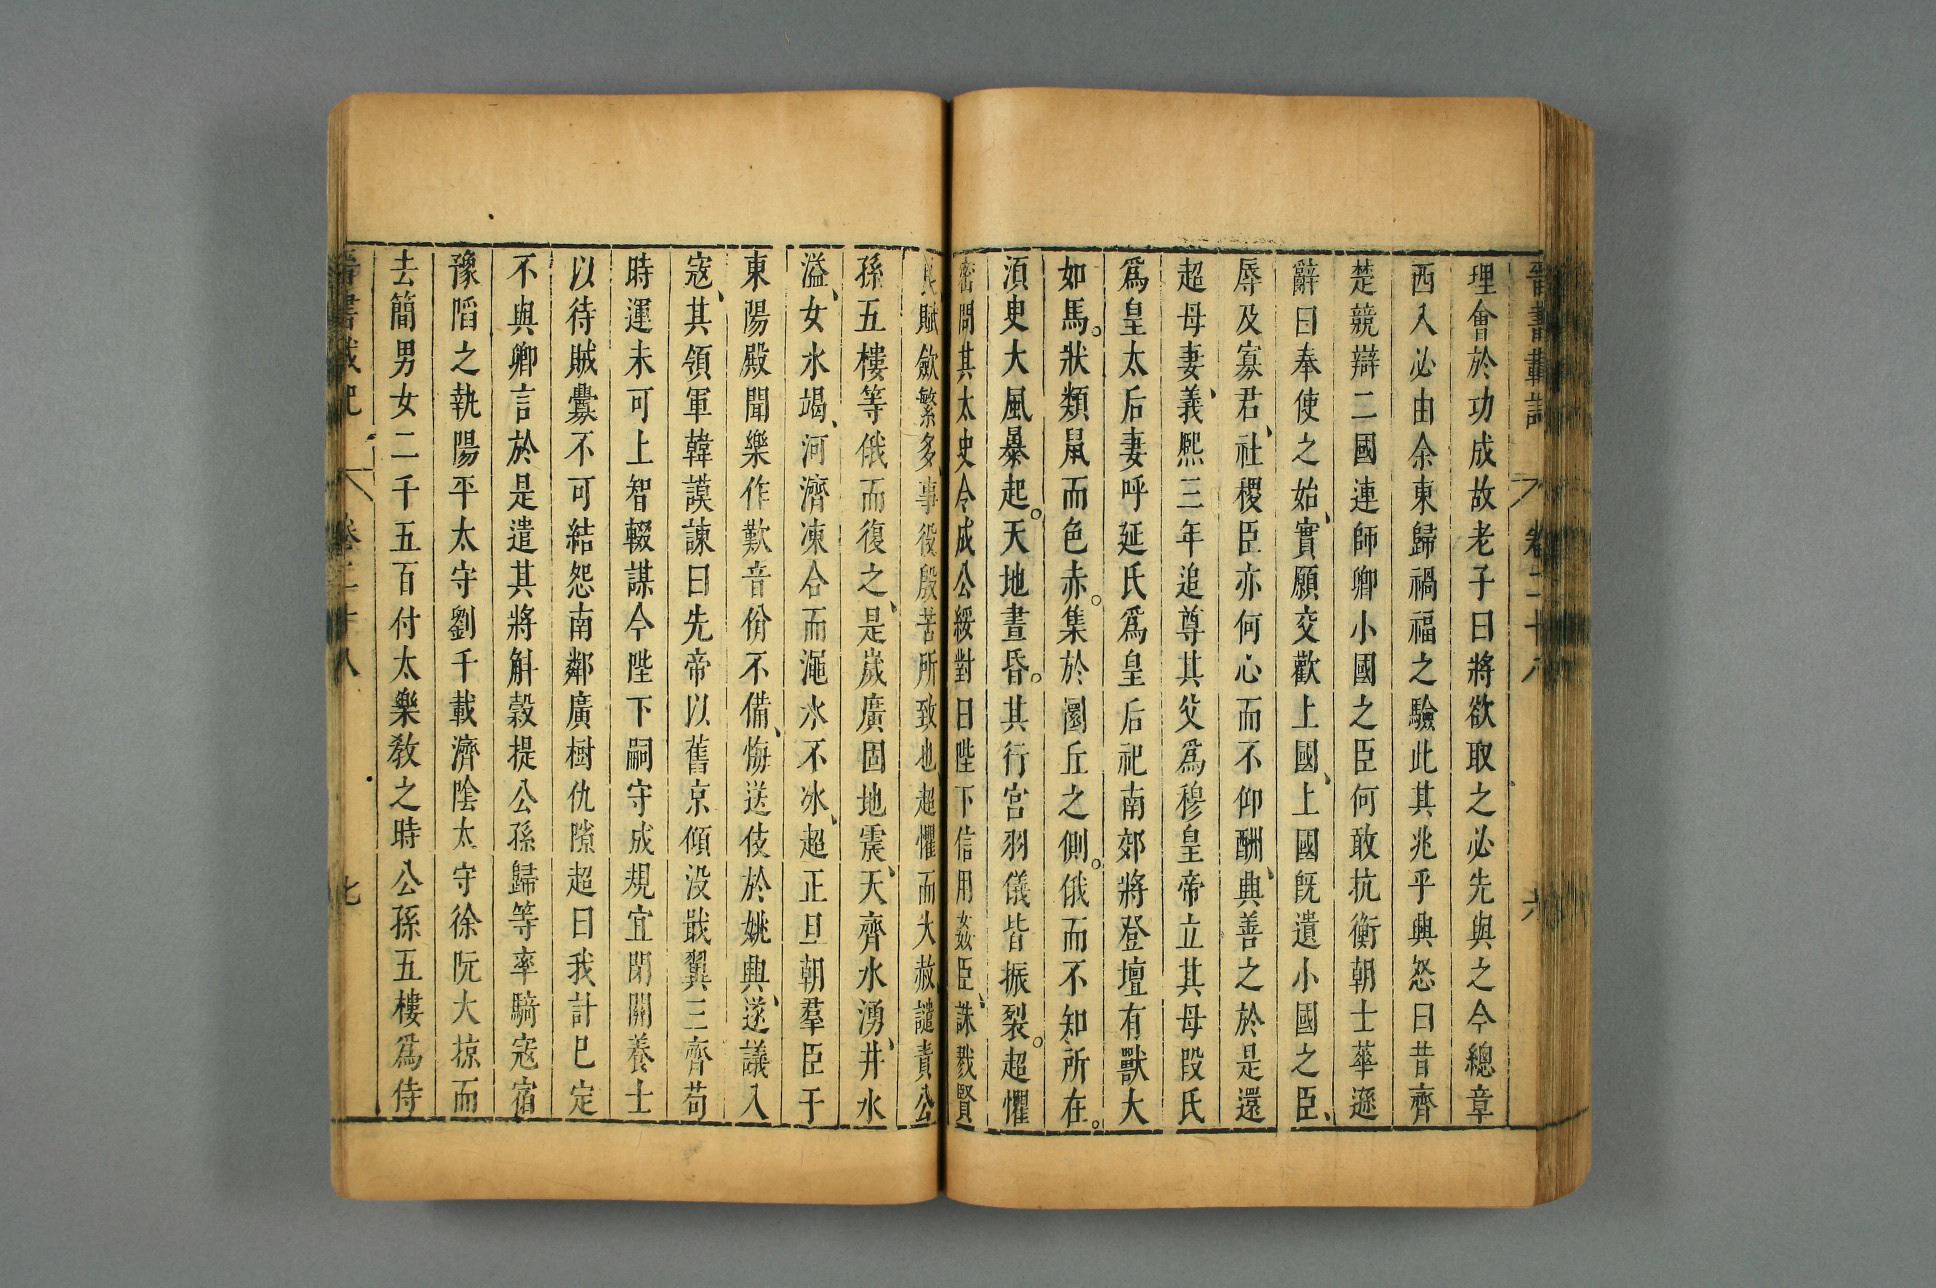 晉書載記 卷二十八 六
理會於功成故老子曰將欲取之必先與之今總章
西入必由余東歸禍福之驗此其兆乎興怒曰昔齊
楚競辯二國連師卿小國之臣何敢抗衡朝士華遜
辭曰奉使之始實願交歡上國上國旣遺小國之臣
辱及寡君社稷臣亦何心而不仰酬興善之於是還
超母妻義熙三年追尊其父爲穆皇帝立其母段氏
爲皇太后妻呼延氏爲皇后祀南郊將登壇有獸大
如馬狀類鼠而色赤集於圜丘之側俄而不知所在
須臾大風暴起天地晝昏其行宮羽儀皆振裂超懼
密問其太史令成公綏對曰陛下信用姦臣誅戮賢
良賦斂繁多事役殷苦所致也超懼而大赦譴責公
孫五樓等俄而復之是歲廣固地震天齊水湧井水
溢女水竭河濟凍合而澠水不冰超正旦朝羣臣于
東陽殿聞樂作歎音佾不備悔送伎於姚興遂議入
寇其領軍韓𧨏諫曰先帝以舊京傾没戢翼三齊苟
時運未可上智輟謀今陛下嗣守成規宜閉關養士
以待賊釁不可結怨南鄰廣樹仇隙超曰我計已定
不與卿言於是遣其將斛榖提公孫歸等率騎寇宿
豫陷之執陽平太守劉千載濟陰太守徐阮大掠而
去簡男女二千五百付太樂教之時公孫五樓爲侍
晉書載記 卷二十八 七